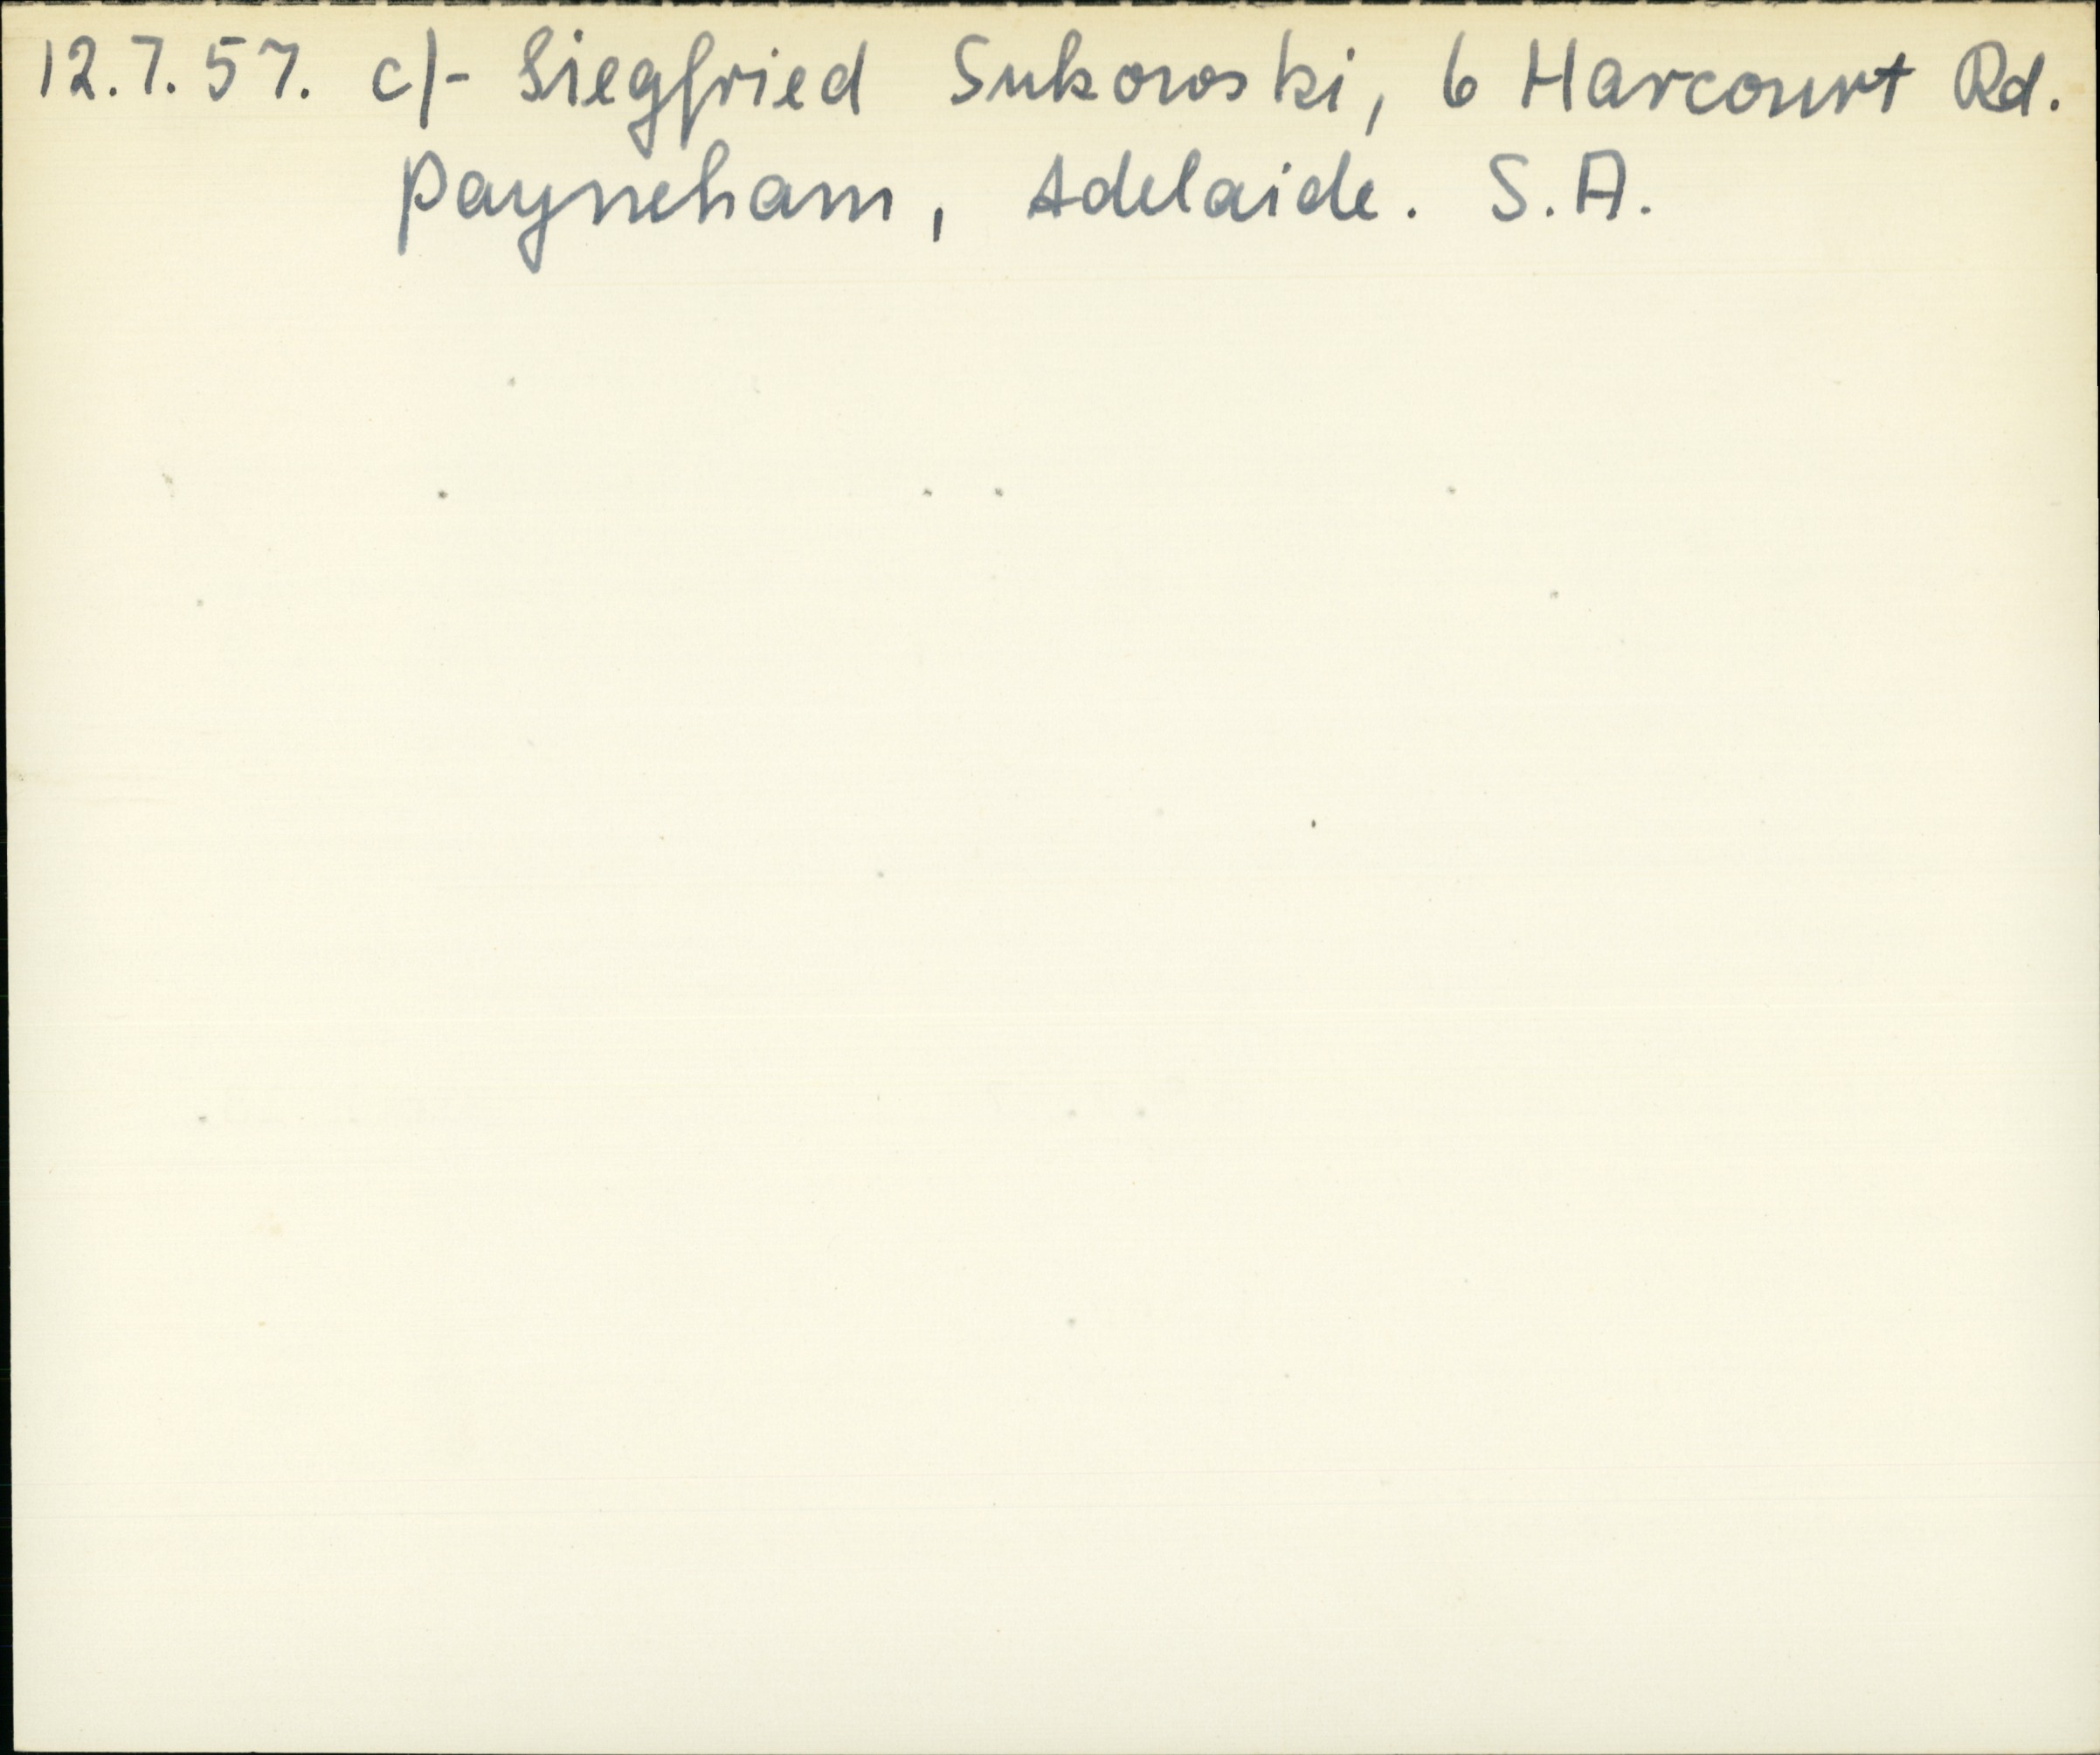 12.7.57. c/- Siegfried Sukowski, 6 Harcourt Rd.
Payneham, Adelaide. S.A.